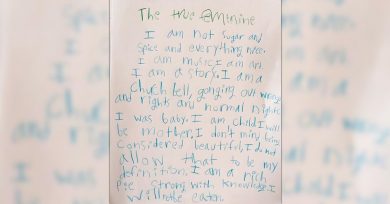 The true eminine
I am not sugar and
spice and everything nice.
I am music I am art.
I am a story. I am a
Chuch bell, gonging out wrongs
and rights and normal nights.
I was baby. I am child I will
be mother. I don't mind being
considered beautiful, I do not
allow that to be my
definition. I am a rich
pie strong with knowledge. I
will not be eaten.